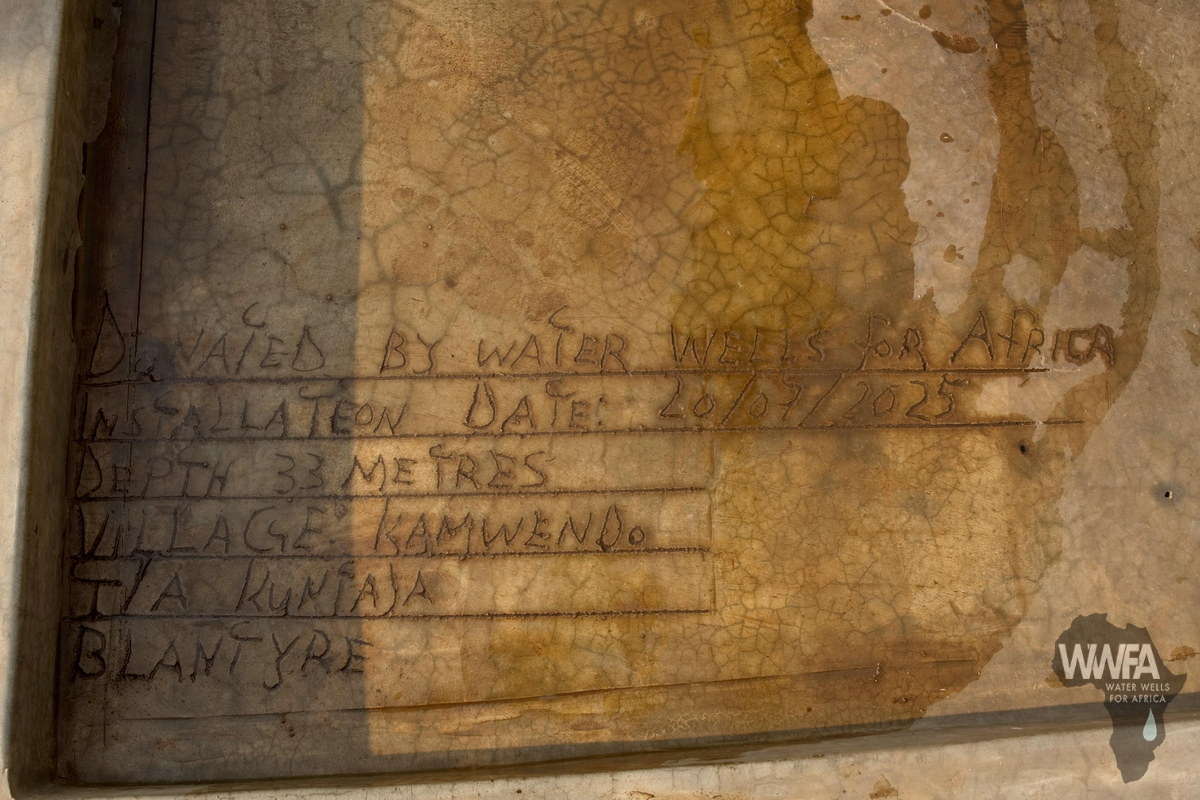 DONATED BY WATER WELLS FOR AFRICA
INSTALLATEON DATE: 20/07/2025
DEPTH 33 METRES
VILLAGE: KAMWENDO
T/A KUNTAJA
BLANTYRE
WWFA
WATER WELLS
FOR AFRICA